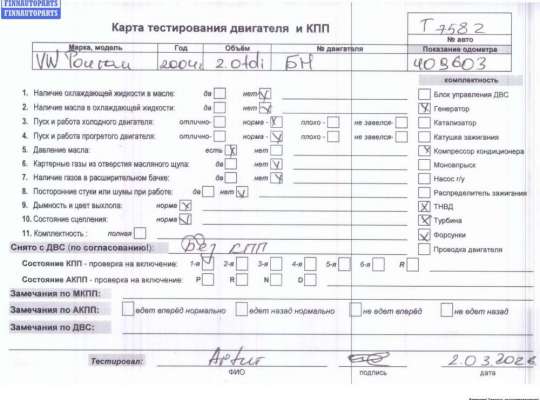 FINNAUTOPARTS
FINNAUTOPARTS
Карта тестирования двигателя и КПП
T 7582
№ авто
Марка, модель Год Объём № двигателя Показание одометра
VW Touran 2004г 2.0tdi 403603
комплектность
1. Наличие охлаждающей жидкости в масле: да нет Блок управления ДВС
2. Наличие масла в охлаждающей жидкости: да нет Генератор
3. Пуск и работа холодного двигателя: отлично- норма - плохо - не завелся- Катализатор
4. Пуск и работа прогретого двигателя: отлично- норма - плохо - не завелся- Катушка зажигания
5. Давление масла: есть нет Компрессор кондиционера
6. Картерные газы из отверстия масляного щупа: да нет Моновпрыск
7. Наличие газов в расширительном бачке: да нет Насос г/у
8. Посторонние стуки или шумы при работе: да нет Распределитель зажигания
9. Дымность и цвет выхлопа: норма ТНВД
10. Состояние сцепления: норма Турбина
11. Комплектность : полная Форсунки
Снято с ДВС (по согласованию!): Без КПП Проводка двигателя
Состояние КПП - проверка на включение: 1-я 2-я 3-я 4-я 5-я 6-я R
Состояние АКПП - проверка на включение: P R N D
Замечания по МКПП:
Замечания по АКПП: едет вперёд нормально едет назад нормально не едет вперёд не едет назад
Замечания по ДВС:
Тестировал: Artur
ФИО подпись дата